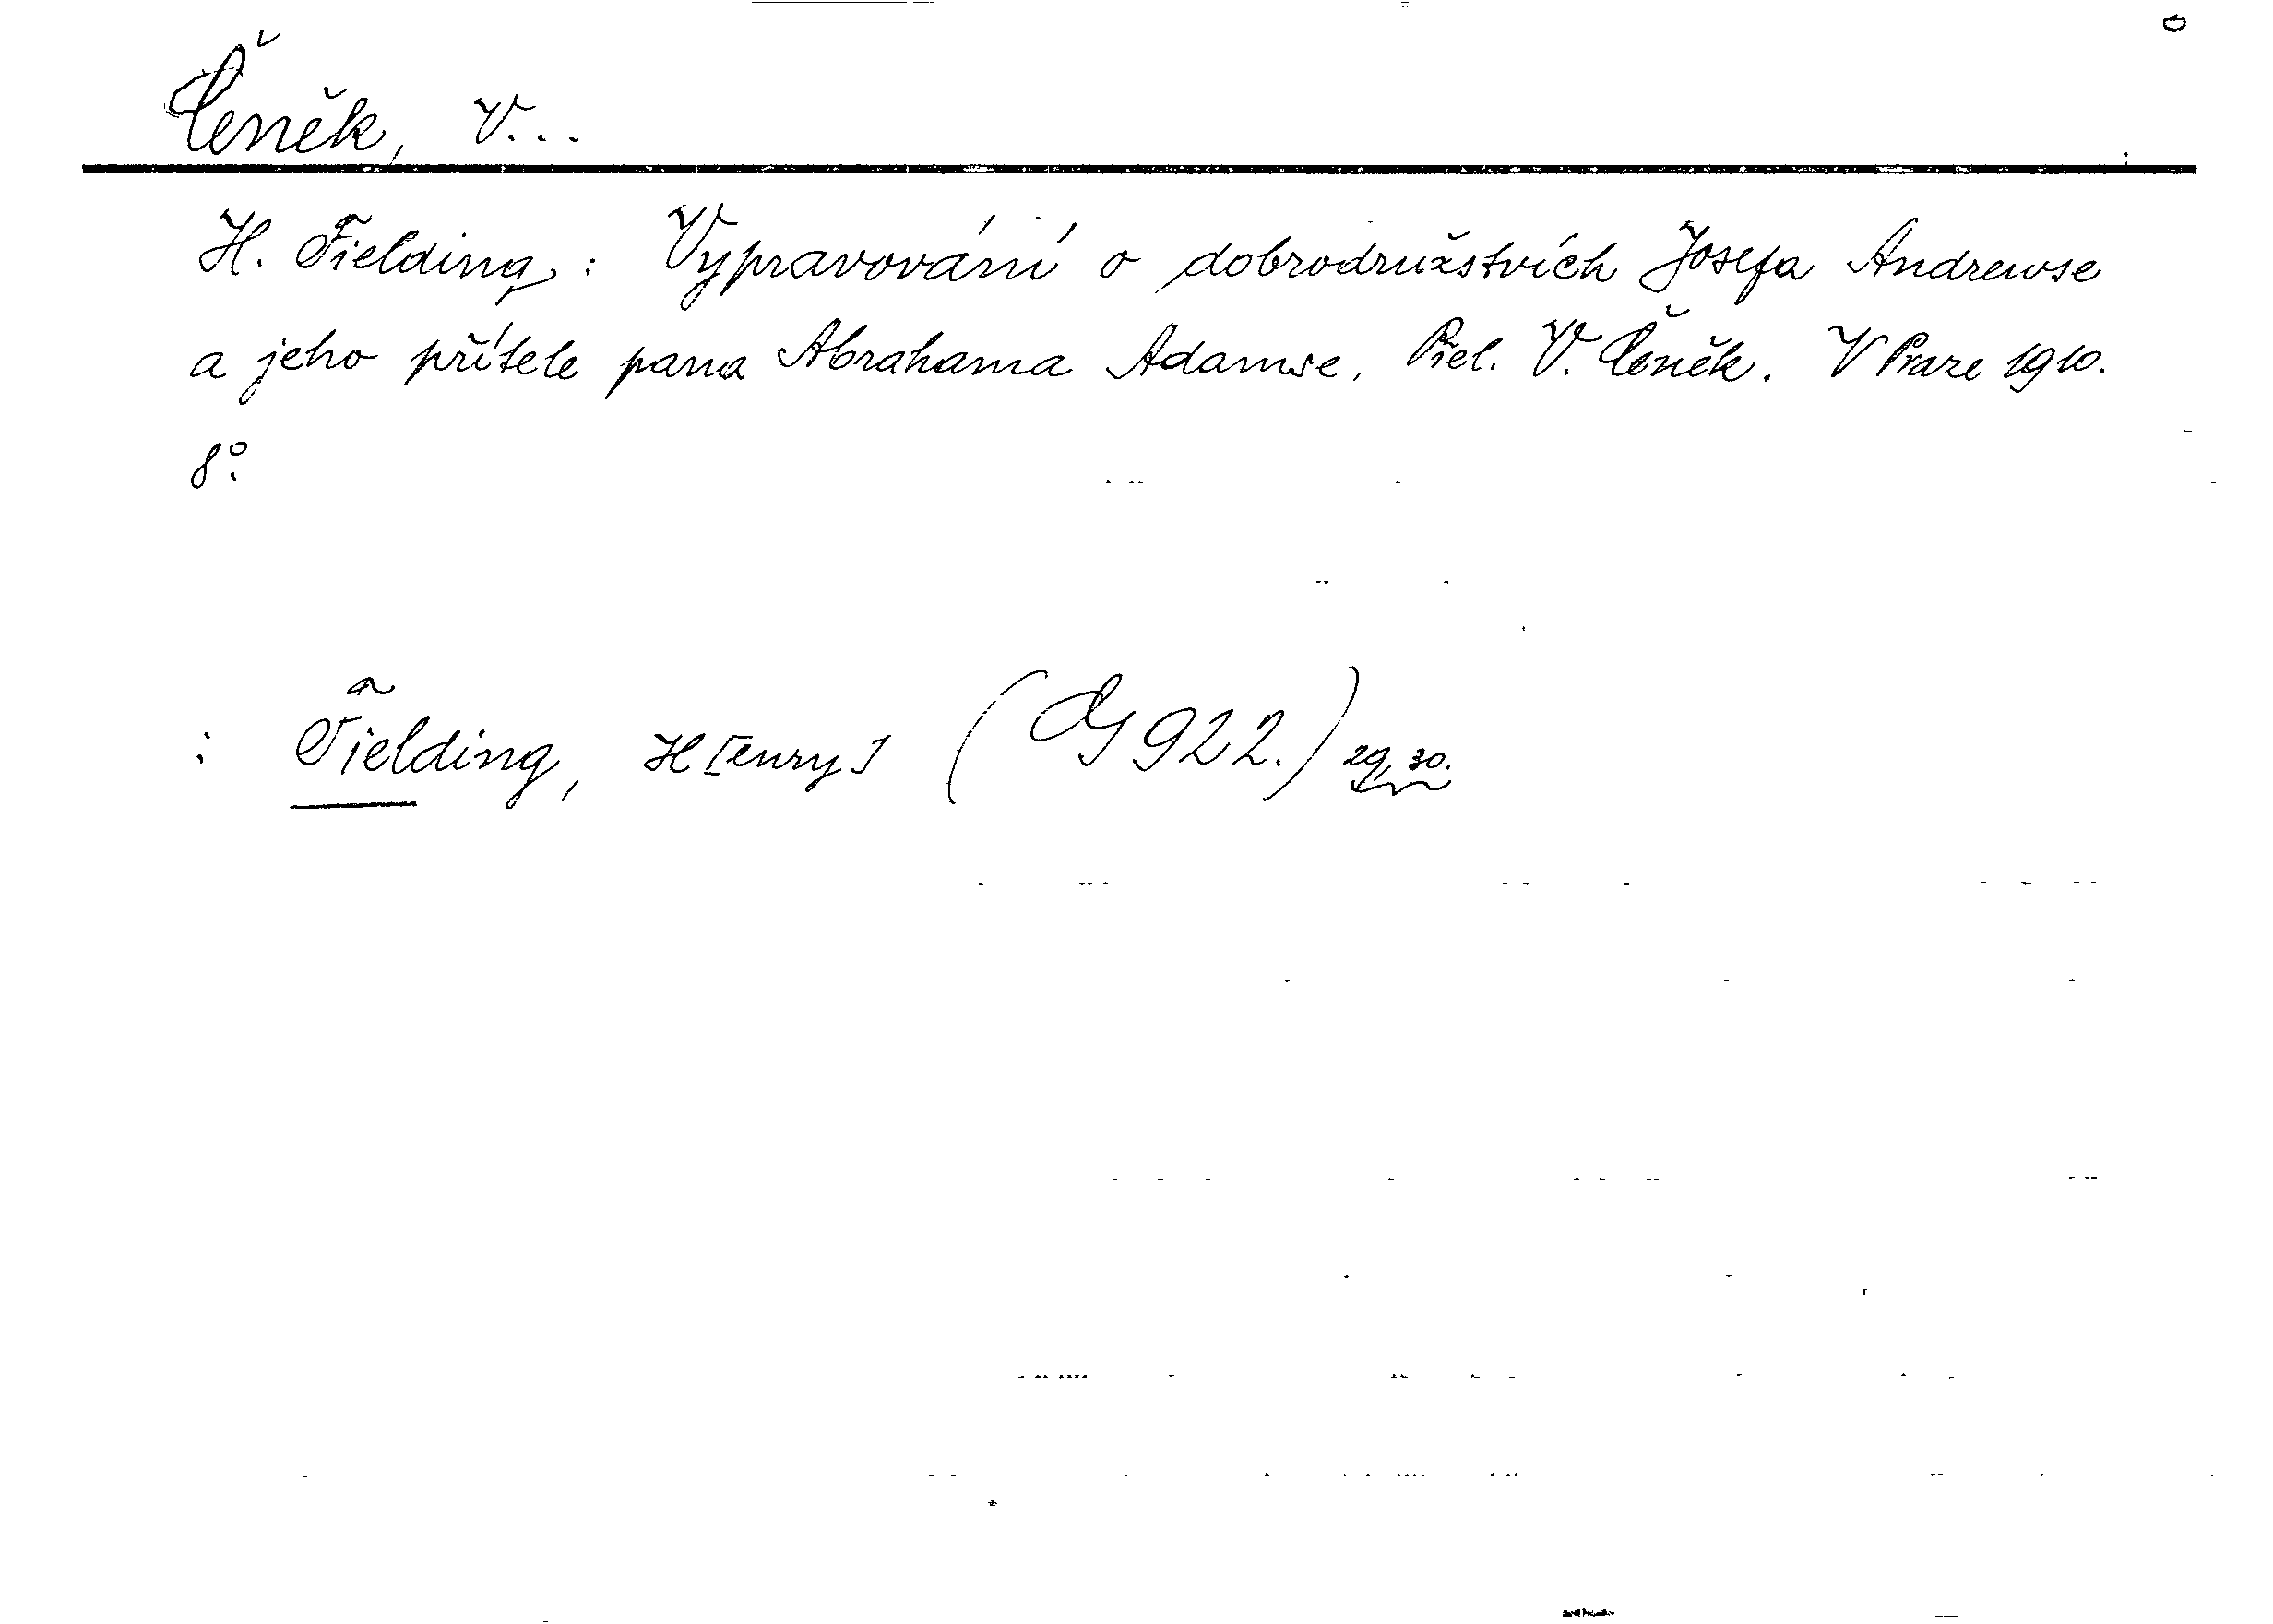 Čeněk, V...
H. Fielding: Vypravování o dobrodružstvích Josefa Andrewse
a jeho přítele pana Abrahama Adamse. Přel. V. Čeněk. V Praze 1910.
8°.
: Fielding, H[enry] (G 922.) 29, 30.